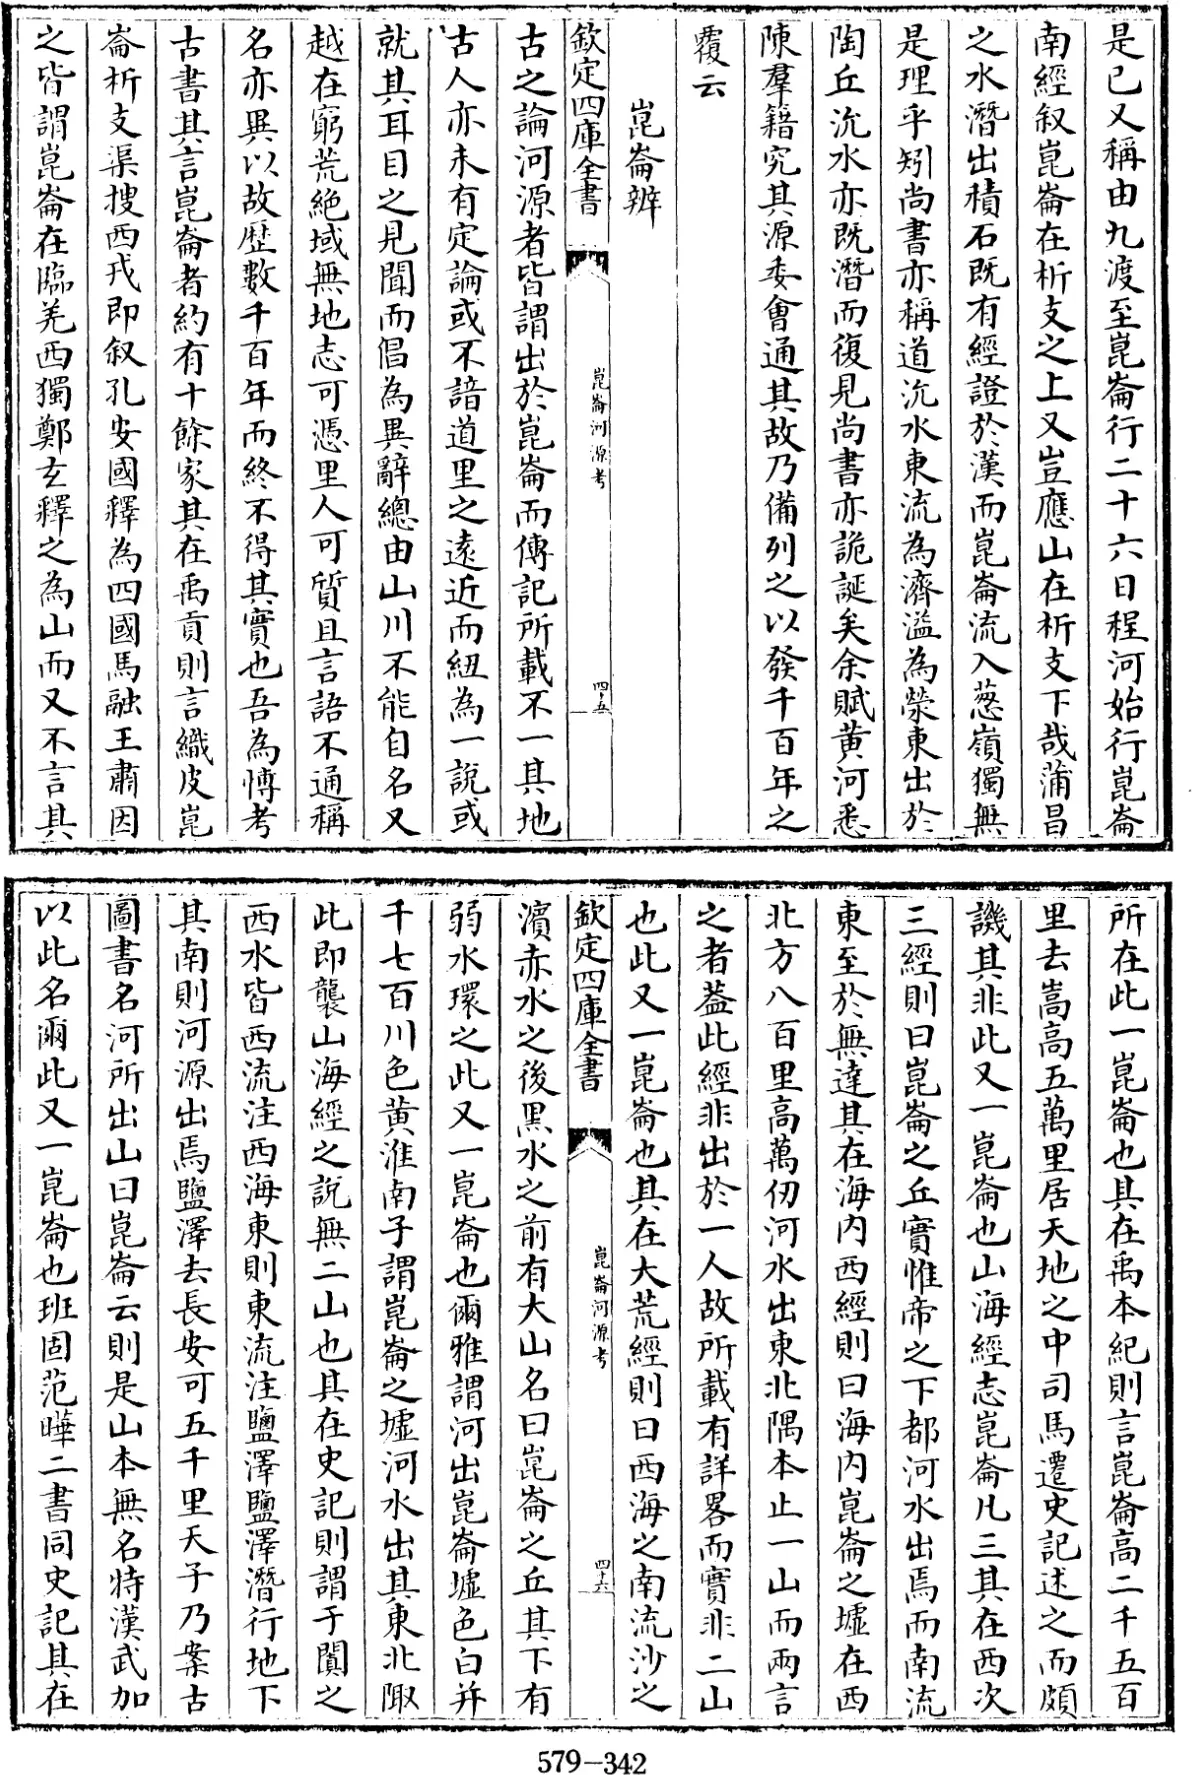 是已又稱由九渡至崑崙行二十六日程河始行崑崙
南經叙崑崙在析支之上又豈應山在析支下哉蒲昌
之水潛出積石既有經證於漢而崑崙流入葱嶺獨無
是理乎矧尚書亦稱道沇水東流為濟溢為滎東出於
陶丘沇水亦既潛而復見尚書亦詭誕矣余賦黄河悉
陳羣籍究其源委會通其故乃備列之以發千百年之
覆云
崑崙辨
欽定四庫全書
崑崙河源考
四十五
古之論河源者皆謂出於崑崙而傳記所載不一其地
古人亦未有定論或不諳道里之遠近而紐為一說或
就其耳目之見聞而倡為異辭總由山川不能自名又
越在窮荒絶域無地志可憑里人可質且言語不通稱
名亦異以故歷數千百年而終不得其實也吾為博考
古書其言崑崙者約有十餘家其在禹貢則言織皮崑
崙析支渠搜西戎即叙孔安國釋為四國馬融王肅因
之皆謂崑崙在臨羌西獨鄭玄釋之為山而又不言其
所在此一崑崙也其在禹本紀則言崑崙高二千五百
里去嵩高五萬里居天地之中司馬遷史記述之而頗
譏其非此又一崑崙也山海經志崑崙凡三其在西次
三經則曰崑崙之丘實惟帝之下都河水出焉而南流
東至於無達其在海内西經則曰海内崑崙之墟在西
北方八百里高萬仞河水出東北隅本止一山而兩言
之者葢此經非出於一人故所載有詳畧而實非二山
也此又一崑崙也其在大荒經則曰西海之南流沙之
欽定四庫全書
崑崙河源考
四十六
濵赤水之後黑水之前有大山名曰崑崙之丘其下有
弱水環之此又一崑崙也爾雅謂河出崑崙墟色白并
千七百川色黄淮南子謂崑崙之墟河水出其東北陬
此即襲山海經之說無二山也其在史記則謂于闐之
西水皆西流注西海東則東流注鹽澤鹽澤潛行地下
其南則河源出焉鹽澤去長安可五千里天子乃案古
圖書名河所出山曰崑崙云則是山本無名特漢武加
以此名爾此又一崑崙也班固范曄二書同史記其在
579-342